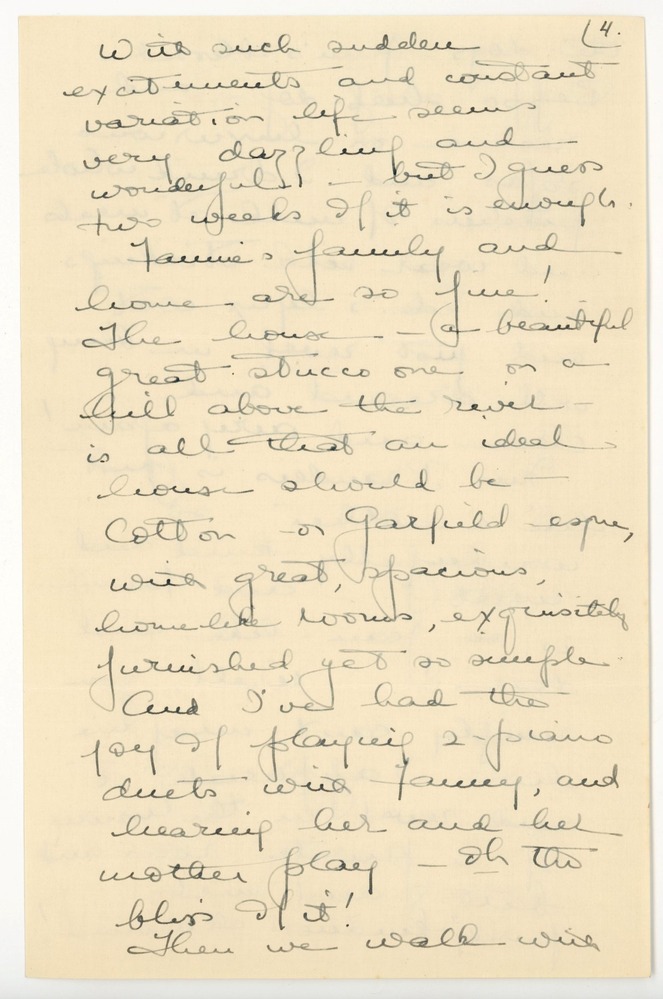 (4.
With such sudden
excitements and constant
variation life seems
very dazzling and
wonderful! – but I guess
two weeks of it is enough.
Fannie's family and
home are so fine!
The house – a beautiful
great stucco one on a
hill above the river –
is all that an ideal
house should be –
Cotton – or Garfield –
with great, spacious,
homelike rooms, exquisitely
furnished, yet so simple.
And I've had the
joy of playing 2-piano
duets with Fanny, and
hearing her and her
mother play – Oh the
bliss of it!
Then we walk with